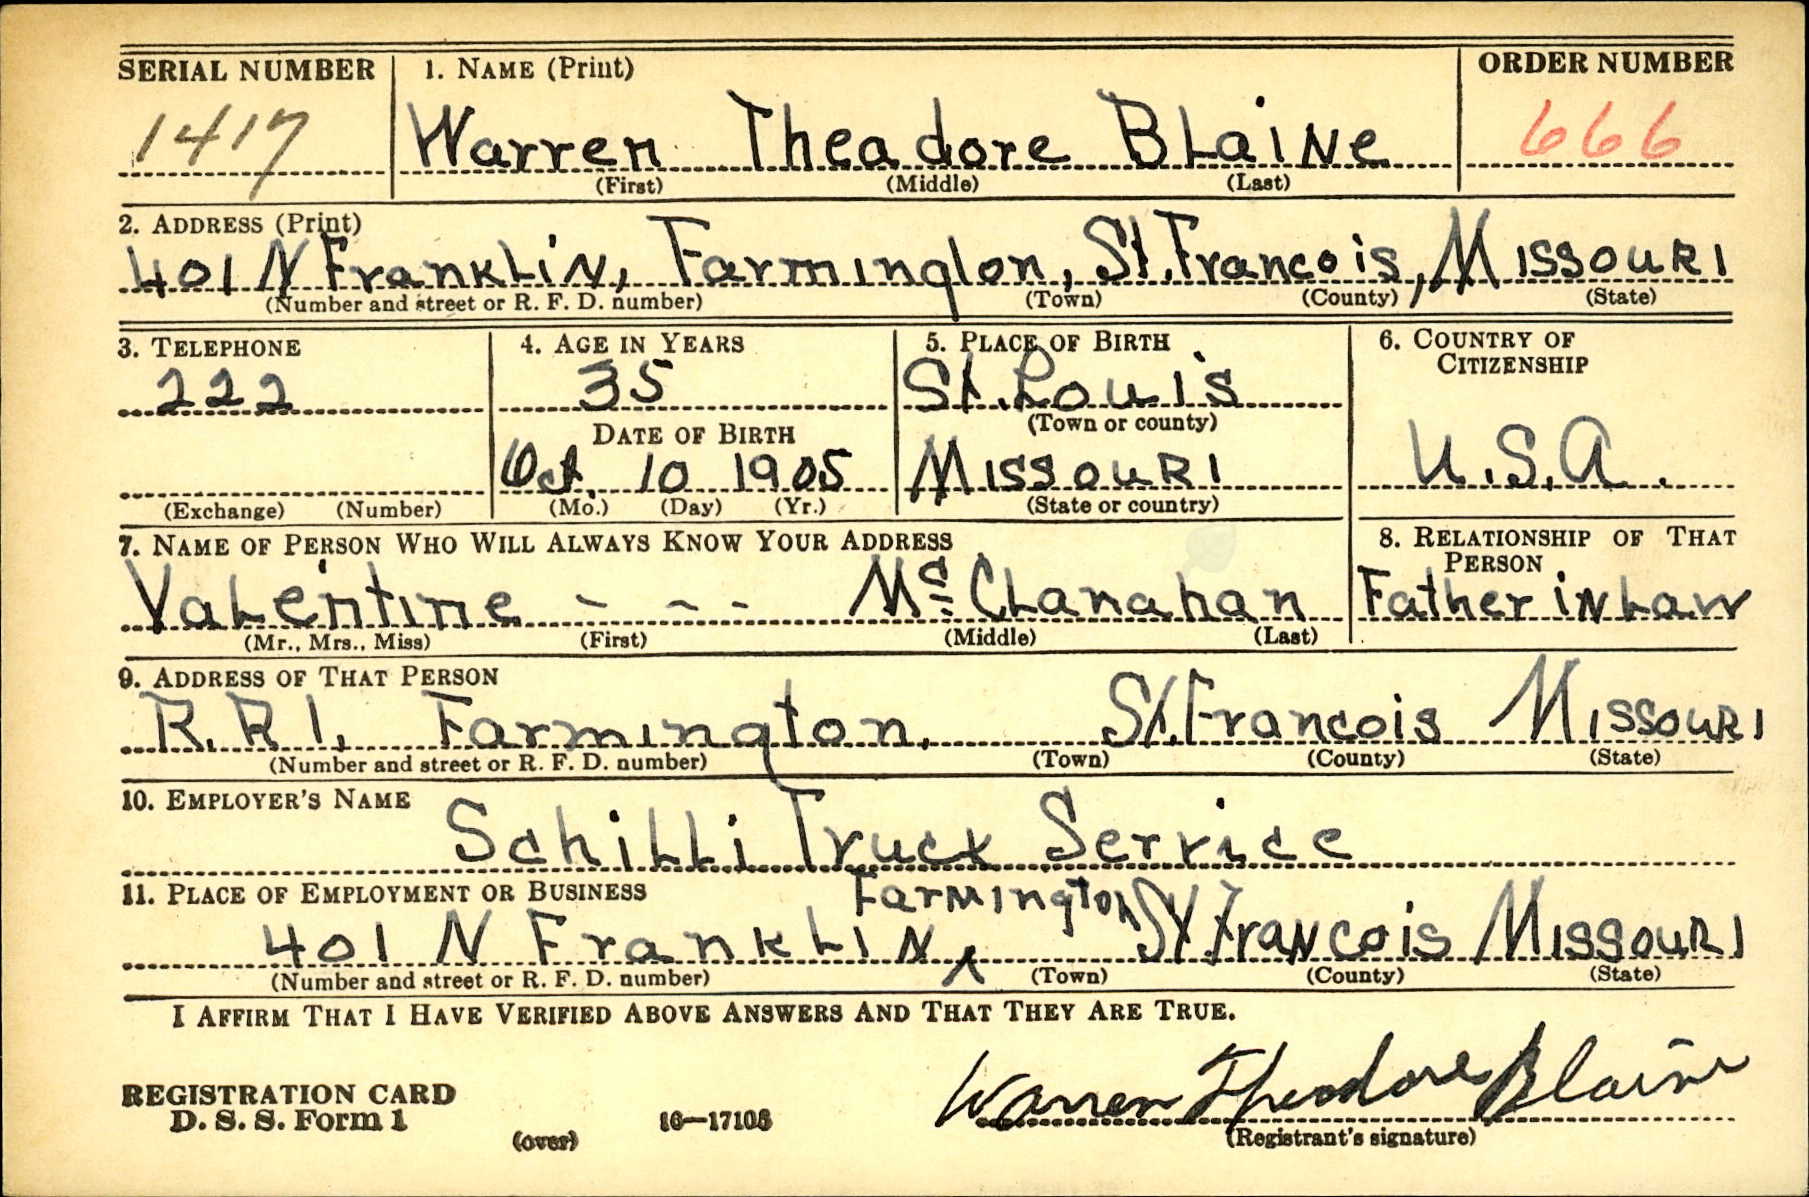 SERIAL NUMBER 1. NAME (Print) ORDER NUMBER
1417 Warren Theadore BLaiNe 666
(First) (Middle) (Last)
2. ADDRESS (Print)
401 N FrankLiN, Farmington, St. Francois, MissouRi
(Number and street or R. F. D. number) (Town) (County) (State)
3. TELEPHONE 4. AGE IN YEARS 5. PLACE OF BIRTH 6. COUNTRY OF CITIZENSHIP
222 35 St. Louis
DATE OF BIRTH (Town or county)
Oct. 10 1905 MissouRi U.S.A.
(Exchange) (Number) (Mo.) (Day) (Yr.) (State or country)
7. NAME OF PERSON WHO WILL ALWAYS KNOW YOUR ADDRESS 8. RELATIONSHIP OF THAT PERSON
VaLentine - - - McCLanahan Father iN Law
(Mr., Mrs., Miss) (First) (Middle) (Last)
9. ADDRESS OF THAT PERSON
R.R 1. Farmington. St. Francois MissouRi
(Number and street or R. F. D. number) (Town) (County) (State)
10. EMPLOYER'S NAME
SchiLLi Truck Service
11. PLACE OF EMPLOYMENT OR BUSINESS Farmington
401 N FrankLiN ^ St FraNcois MissouRi
(Number and street or R. F. D. number) (Town) (County) (State)
I AFFIRM THAT I HAVE VERIFIED ABOVE ANSWERS AND THAT THEY ARE TRUE.
Warren Theodore Blaine
REGISTRATION CARD
D. S. S. Form 1 (over) 16—17105 (Registrant's signature)